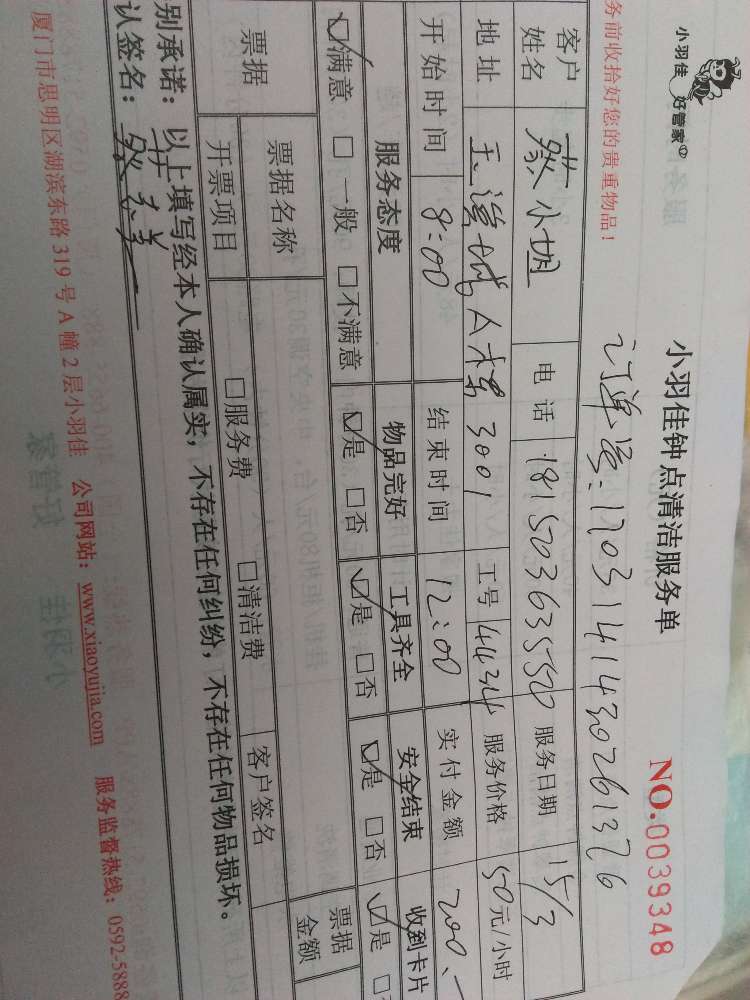 小羽佳 好管家
小羽佳钟点清洁服务单
NO.0039348
务前收拾好您的贵重物品！
订单号：1703141430261376
客户姓名 蔡小姐 电话 18150363550 服务日期 15/3
地址 A栋3001 工号 4434 服务价格 50元/小时
开始时间 8:00 结束时间 12:00 实付金额 200.-
服务态度 物品完好 工具齐全 安全结束 收到卡片
☑满意 □一般 □不满意 ☑是 □否 ☑是 □否 ☑是 □否 ☑是 □否
票据 票据名称 票据金额
开票项目 □服务费 □清洁费 客户签名
别承诺：以上填写经本人确认属实，不存在任何纠纷，不存在任何物品损坏。
认签名：
厦门市思明区湖滨东路319号A幢2层小羽佳 公司网站：www.xiaoyujia.com 服务监督热线：0592-5888